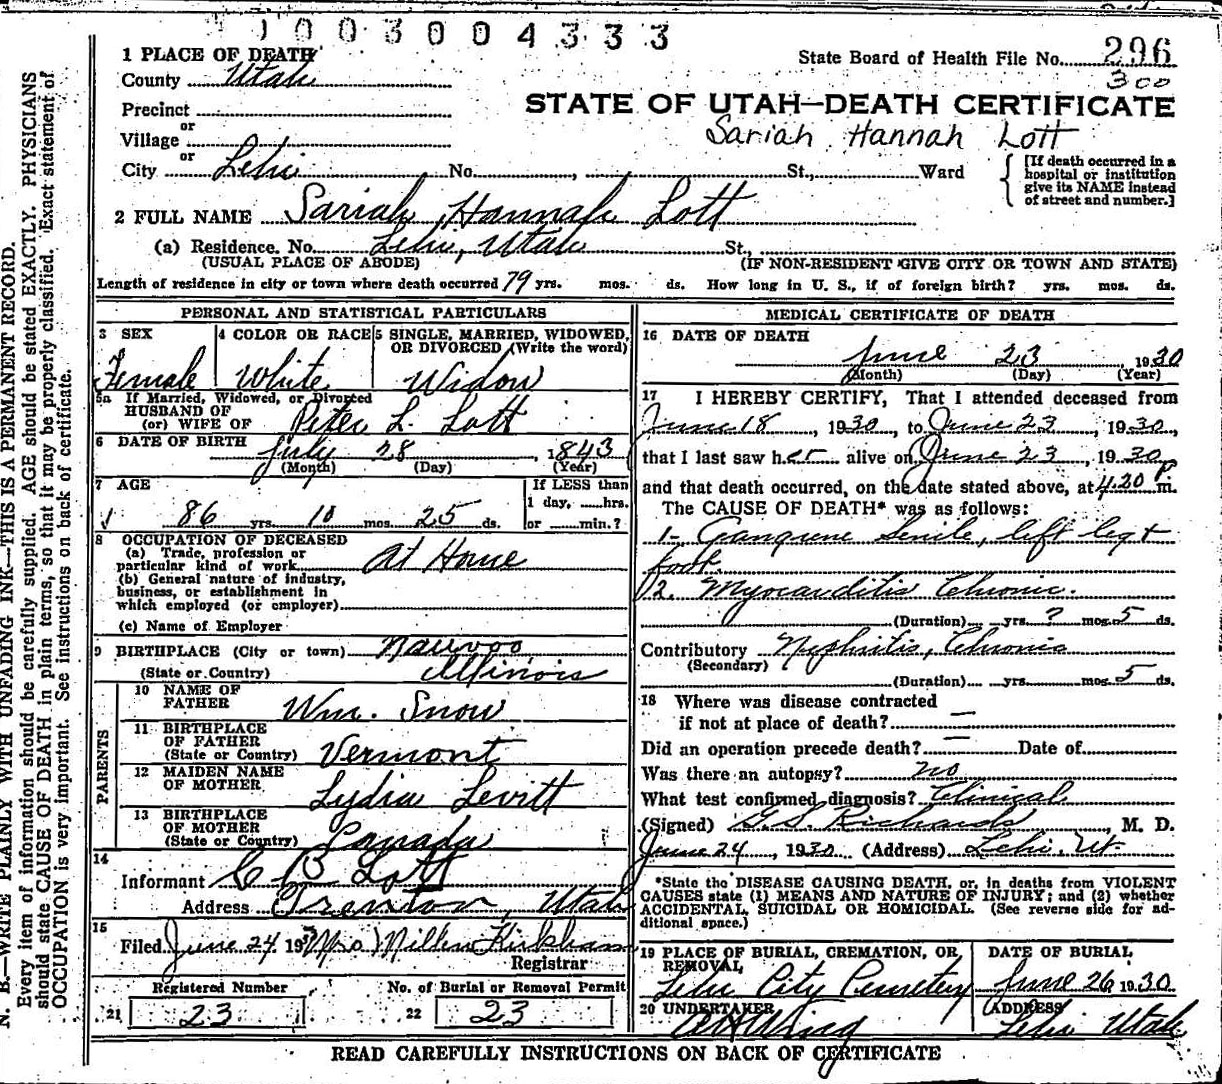 1003004333
1 PLACE OF DEATH
State Board of Health File No. 296
County Utah
300
Precinct
STATE OF UTAH—DEATH CERTIFICATE
or
Village
Sariah Hannah Lott
or
City Lehi No. , St., Ward
[If death occurred in a
hospital or institution
give its NAME instead
of street and number.]
2 FULL NAME Sariah Hannah Lott
(a) Residence. No. Lehi, Utah St.,
(USUAL PLACE OF ABODE) (IF NON-RESIDENT GIVE CITY OR TOWN AND STATE)
Length of residence in city or town where death occurred 79 yrs. mos. ds. How long in U. S., if of foreign birth? yrs. mos. ds.
PERSONAL AND STATISTICAL PARTICULARS
3 SEX
Female
4 COLOR OR RACE
White
5 SINGLE, MARRIED, WIDOWED,
OR DIVORCED (Write the word)
Widow
5a If Married, Widowed, or Divorced
HUSBAND OF
(or) WIFE OF Peter L. Lott
6 DATE OF BIRTH
July 28, 1843
(Month) (Day) (Year)
7 AGE
86 yrs. 10 mos. 25 ds.
If LESS than
1 day, hrs.
or min.?
8 OCCUPATION OF DECEASED
(a) Trade, profession or
particular kind of work At Home
(b) General nature of industry,
business, or establishment in
which employed (or employer)
(c) Name of Employer
9 BIRTHPLACE (City or town) Nauvoo
(State or Country) Illinois
PARENTS
10 NAME OF
FATHER Wm. Snow
11 BIRTHPLACE
OF FATHER
(State or Country) Vermont
12 MAIDEN NAME
OF MOTHER Lydia Levitt
13 BIRTHPLACE
OF MOTHER
(State or Country) Canada
14
Informant C B Lott
Address Trenton, Utah
15
Filed June 24 19 Mrs Kirkham
Registrar
Registered Number
21 23
No. of Burial or Removal Permit
22 23
MEDICAL CERTIFICATE OF DEATH
16 DATE OF DEATH
June 23 1930
(Month) (Day) (Year)
17 I HEREBY CERTIFY, That I attended deceased from
June 18, 1930, to June 23, 1930,
that I last saw her alive on June 23, 1930
and that death occurred, on the date stated above, at 4.20 P. m.
The CAUSE OF DEATH* was as follows:
1- Gangrene Senile, left leg +
foot.
2. Myocarditis Chronic.
(Duration) yrs. ? mos. 5 ds.
Contributory Nephritis, Chronic
(Secondary)
(Duration) yrs. mos. 5 ds.
18 Where was disease contracted
if not at place of death? —
Did an operation precede death? — Date of
Was there an autopsy? no
What test confirmed diagnosis? Clinical
(Signed) G.S. Richards, M. D.
June 24, 1930 (Address) Lehi, Ut.
*State the DISEASE CAUSING DEATH, or, in deaths from VIOLENT
CAUSES state (1) MEANS AND NATURE OF INJURY; and (2) whether
ACCIDENTAL, SUICIDAL OR HOMICIDAL. (See reverse side for ad-
ditional space.)
19 PLACE OF BURIAL, CREMATION, OR
REMOVAL
Lehi City Cemetery
DATE OF BURIAL
June 26 1930
20 UNDERTAKER
ADDRESS
Lehi Utah
READ CAREFULLY INSTRUCTIONS ON BACK OF CERTIFICATE
N. B.—WRITE PLAINLY WITH UNFADING INK—THIS IS A PERMANENT RECORD.
Every item of information should be carefully supplied. AGE should be stated EXACTLY. PHYSICIANS
should state CAUSE OF DEATH in plain terms, so that it may be properly classified. Exact statement of
OCCUPATION is very important. See instructions on back of certificate.